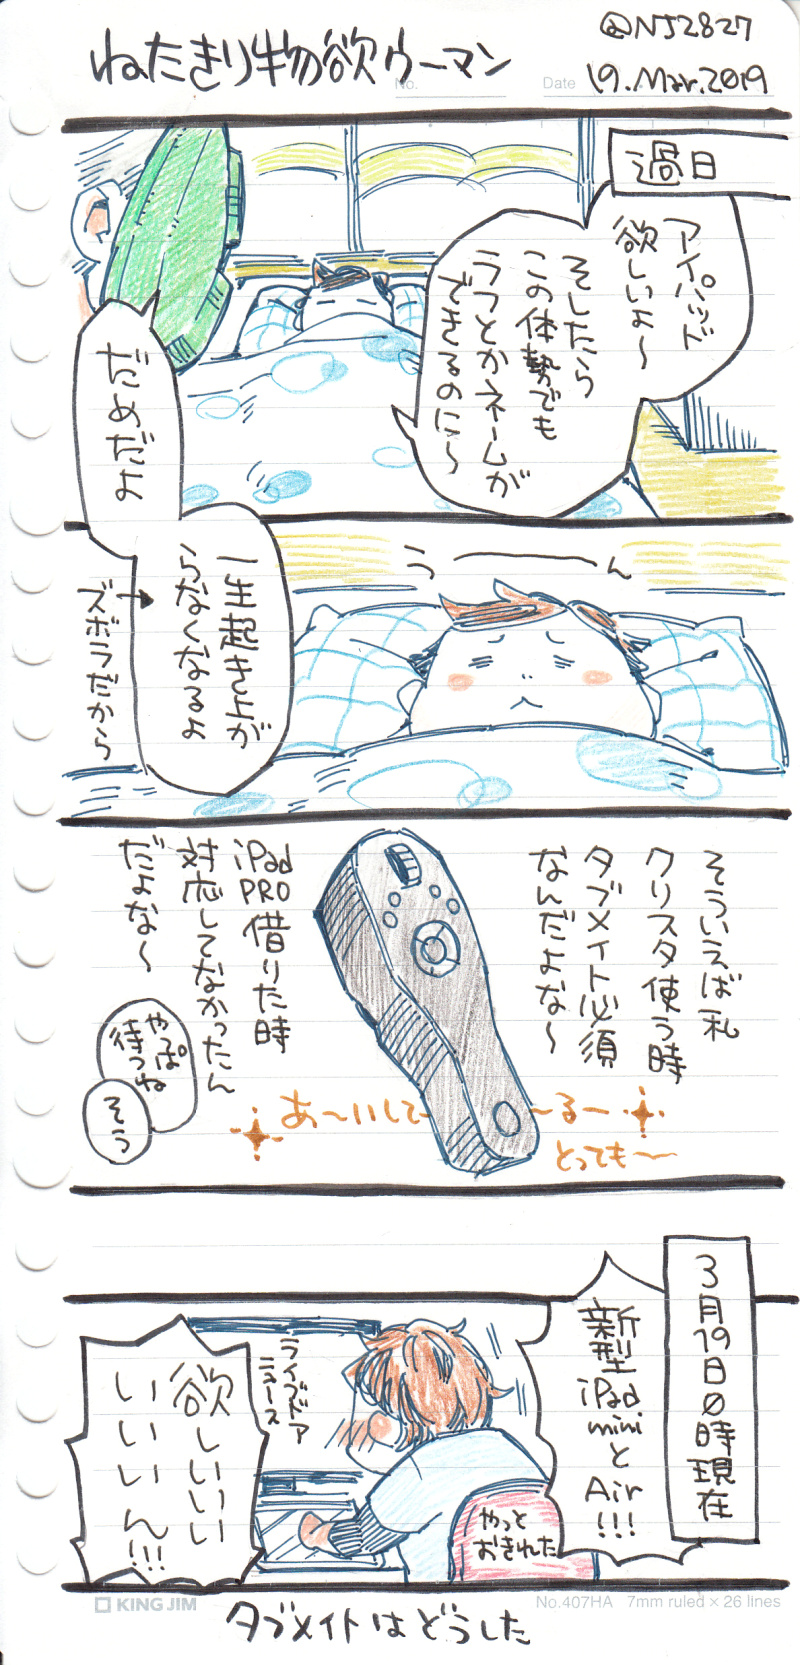 ねたきり物欲ウーマン
@NJ2827
No.
Date
19.Mar.2019
過日
アイパッド
欲しいよ〜
そしたら
この体勢でも
ラフとかネームが
できるのに〜
だめだよ
うーーん
一生起き上が
らなくなるよ
ズボラだから
そういえば私
クリスタ使う時
タブメイト必須
なんだよな〜
iPad
PRO借りた時
対応してなかったん
だよな〜
やっぱ
待つね
そう
あ〜いして〜る〜
とっても〜
3月19日0時現在
新型iPad
miniと
Air!!!
ライブドア
ニュース
やっと
おきれた
欲しいいい
いいいん!!!
KING JIM
No.407HA 7mm ruled × 26 lines
タブメイトはどうした